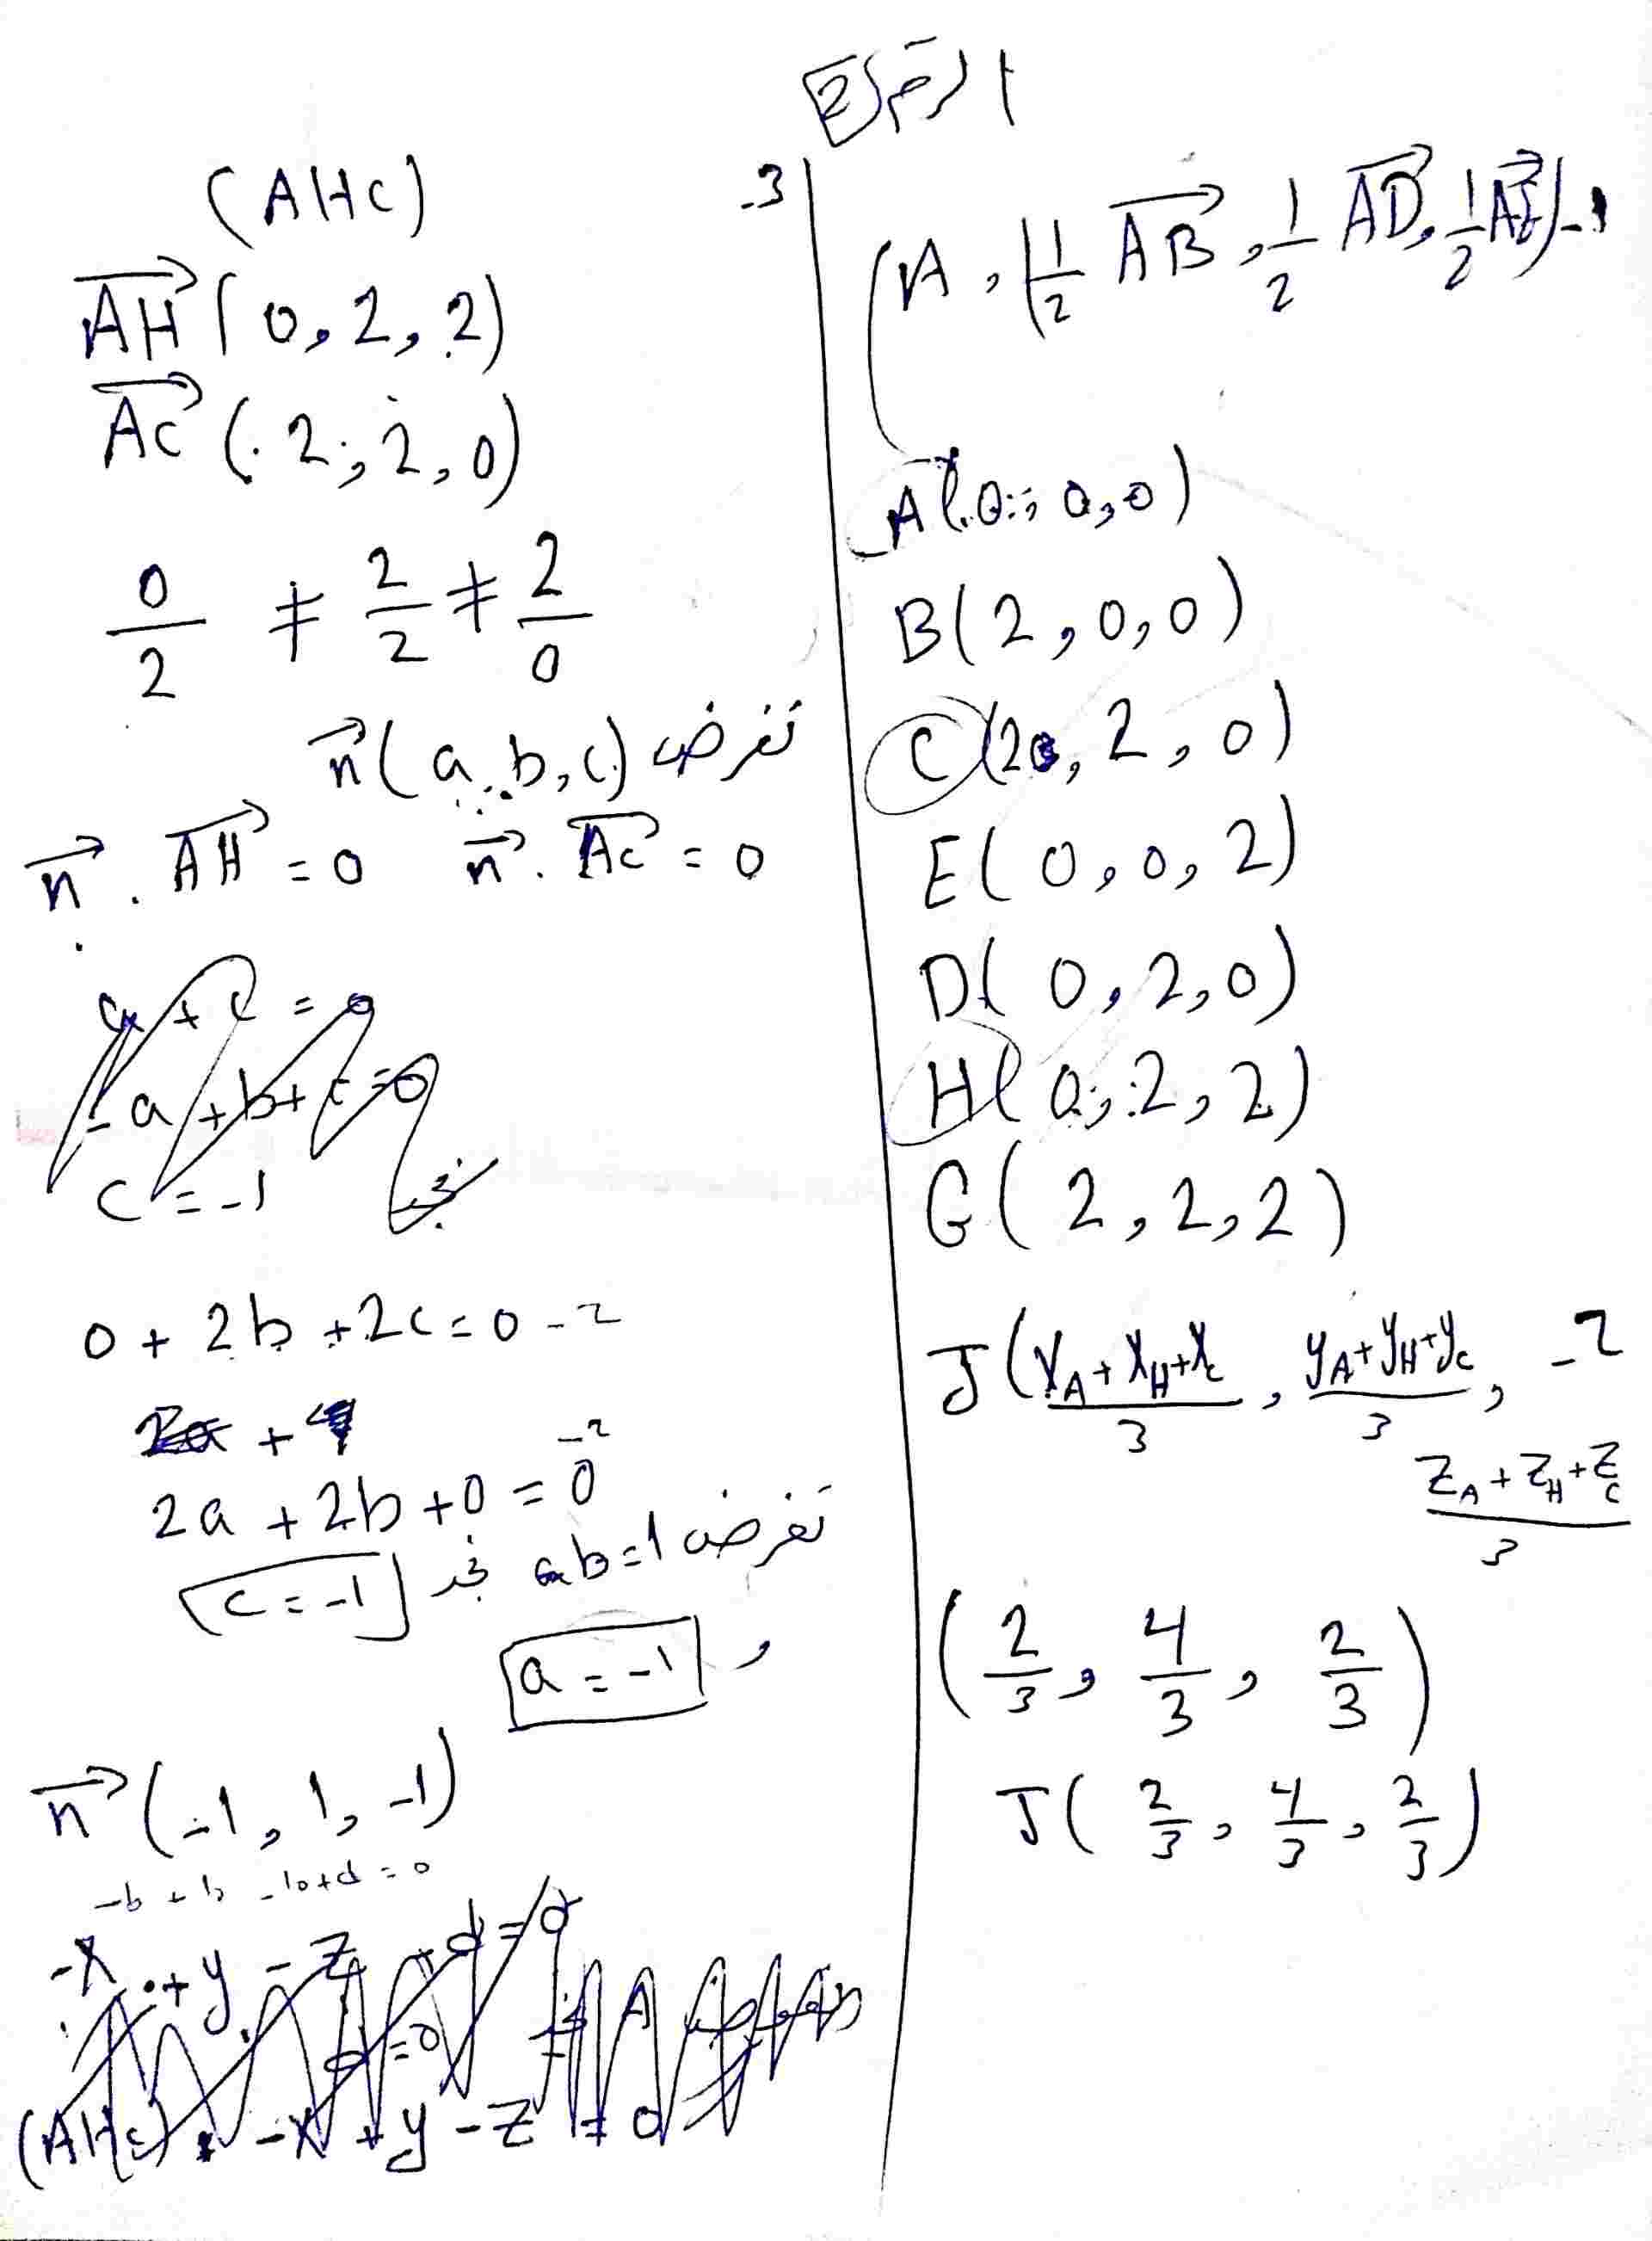 (A, 1/2 AB, 1/2 AD, 1/2 AE) -1
A(0, 0, 0)
B(2, 0, 0)
C(2, 2, 0)
E(0, 0, 2)
D(0, 2, 0)
H(0, 2, 2)
G(2, 2, 2)
J(x_A + x_H + x_C / 3, y_A + y_H + y_C / 3, -2
z_A + z_H + z_C / 3
(2/3, 4/3, 2/3)
J(2/3, 4/3, 2/3)
(AHC) -3
AH(0, 2, 2)
AC(2, 2, 0)
0/2 ≠ 2/2 ≠ 2/0
نفرض n(a, b, c)
n . AH = 0 n . AC = 0
a + c = 0
-a + b + c = 0
c = -1
0 + 2b + 2c = 0 -2
2a + 2b + 0 = 0 -2
نفرض b = 1 نجد c = -1
, a = -1
n(-1, 1, -1)
-x + y - z + d = 0
d = 0
(AHC): -x + y - z = 0